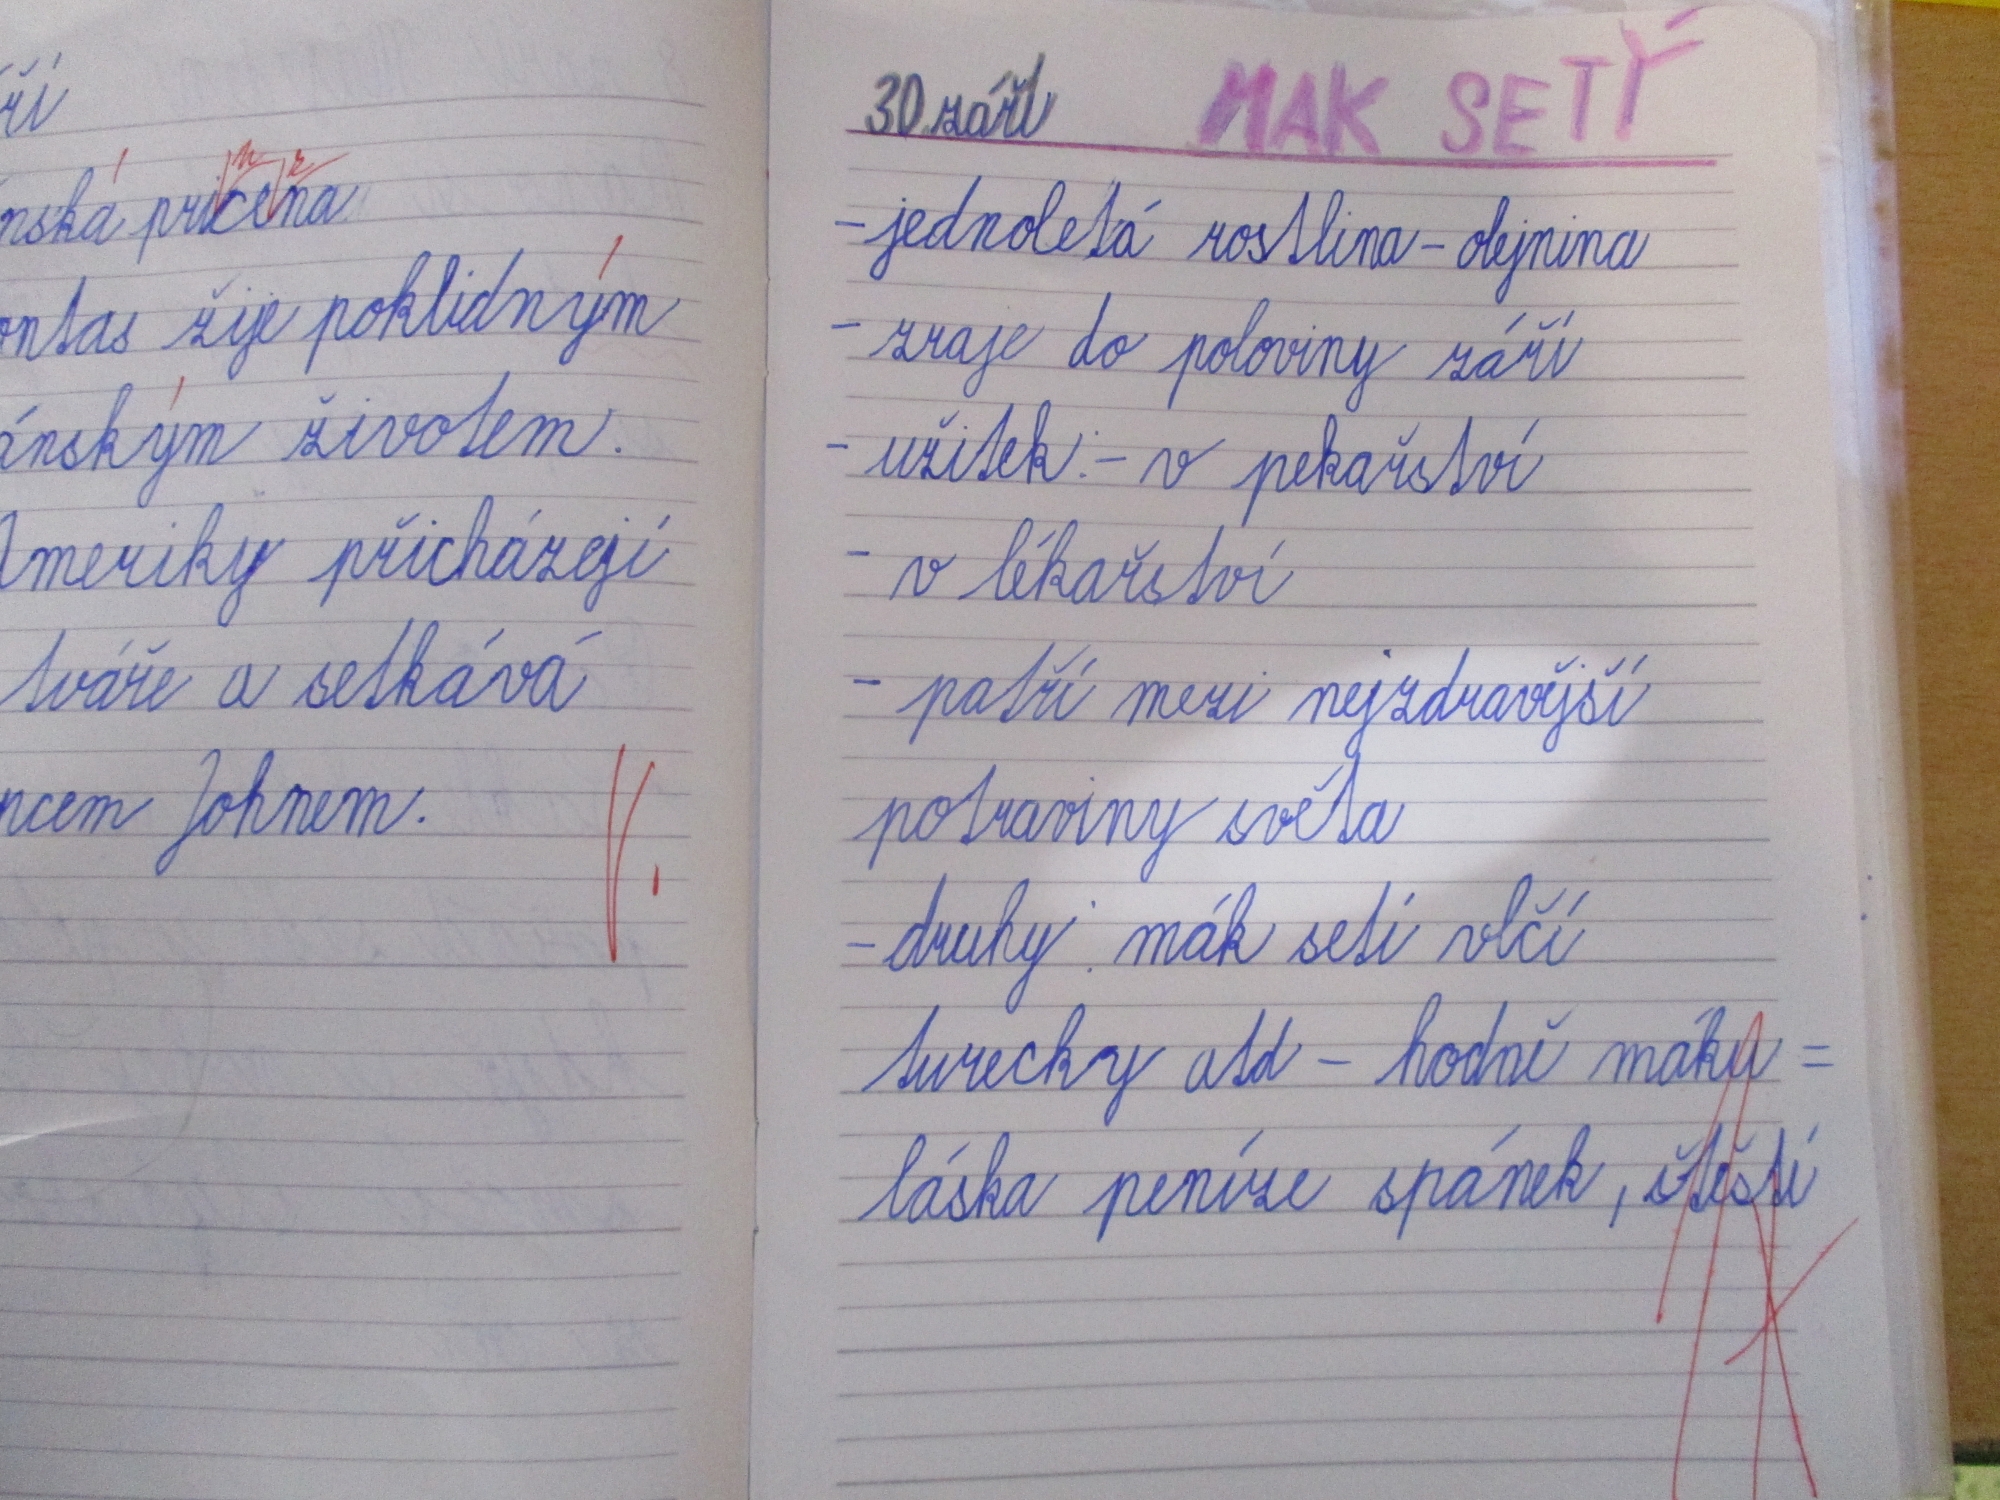 ří
nská princena
ontas žije poklidným
ánským životem.
Ameriky přicházejí
tváře a setkává
ncem Johnem.
30. září MAK SETÝ
- jednoletá rostlina - olejnina
- zraje do poloviny září
- užitek: - v pekařství
- v lékařství
- patří mezi nejzdravější
potraviny světa
- druhy: mák setí vlčí
turecky atd - hodně máku =
láska peníze spánek, štěstí